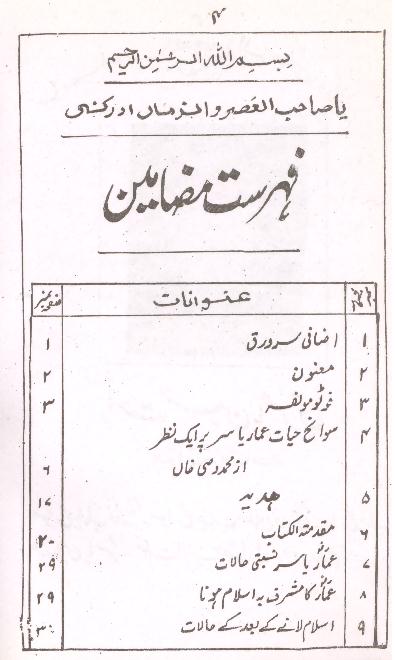 ۴
بسم الله الرحمٰن الرحیم
یا صاحب العصر والزماں ادرکنی
فہرست مضامین
نمبر شمار عنوانات صفحہ نمبر
۱ اضافی سرورق ۱
۲ معنون ۲
۳ فوٹو مولفہ ۳
۴ سوانح حیات عمار یاسر پر ایک نظر
از محمد وصی خاں ۶
۵ ہدیہ ۱۷
۶ مقدمۃ الکتاب ۲۰
۷ عمارؓ یاسر نسبتی حالات ۲۹
۸ عمارؓ کا مشرف بہ اسلام ہونا ۲۹
۹ اسلام لانے کے بعد کے حالات ۳۰